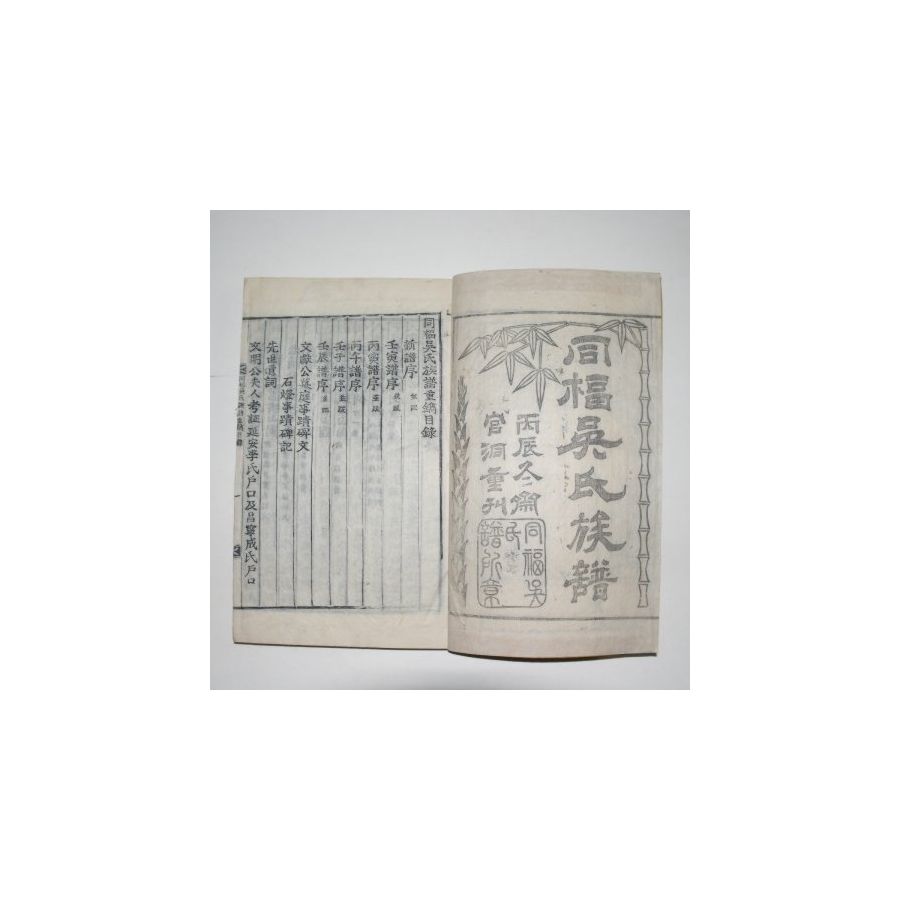 同福吳氏族譜
丙辰冬㑹
官洞重刊
同福吳
氏
譜所章
同福吳氏族譜重鐫目錄
新譜序 並跋
壬寅譜序 並跋
丙寅譜序 並跋
丙午譜序
壬子譜序 並跋
壬辰譜序 並跋
文獻公墓庭事蹟碑文
石燈事蹟碑記
先世遺詞
文明公夫人考証延安李氏戶口及昌寧成氏戶口